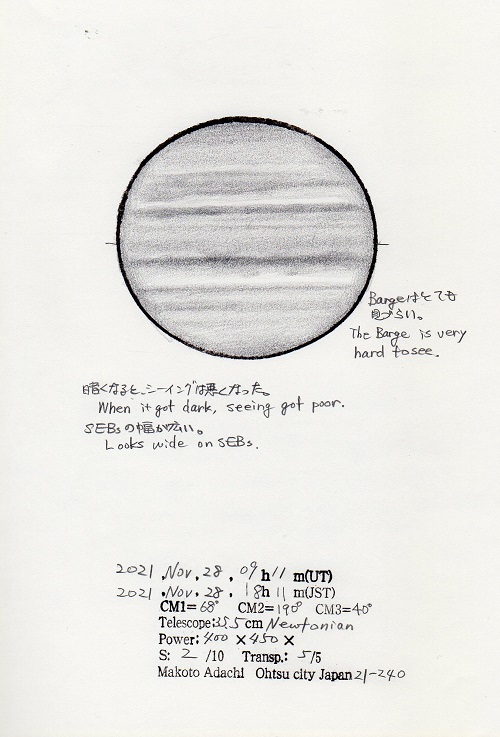 Bargeはとても
見づらい。
The Barge is very
hard to see.
暗くなると、シーイングは悪くなった。
When it got dark, seeing got poor.
SEBsの幅が広い。
Looks wide on SEBs.
2021 .Nov. 28 . 09 h 11 m(UT)
2021 .Nov. 28 . 18h 11 m(JST)
CM1= 68° CM2= 190° CM3= 40°
Telescope:35.5cm Newtonian
Power: 400 × 450 ×
S: 2 /10 Transp.: 5/5
Makoto Adachi Ohtsu city Japan 21-240